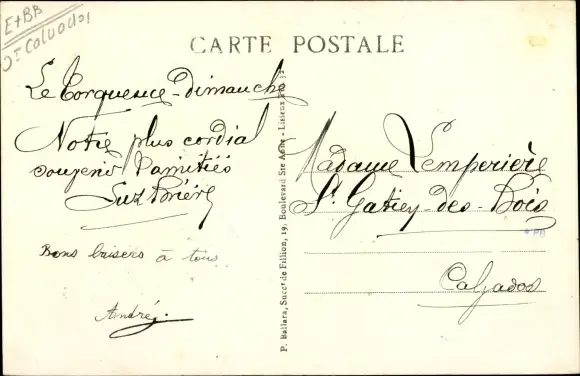 E+BB
Dt Calvados
CARTE POSTALE
Le Torquesne - Dimanche
Notre plus cordial
souvenir d'amitiés
Bons baisers à tous
André
P. Ballara, Succr de Fillion, 19, Boulevard Ste Anne - Lisieux
Madame Lemperière
St Gatien-des-Bois
Calvados